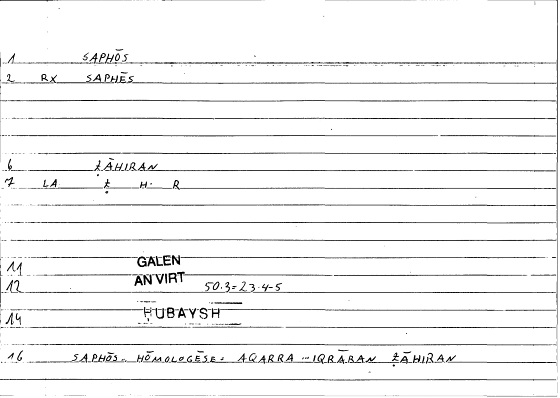 1 SAPHŌS
2 RX SAPHĒS
6 ẒĀHIRAN
7 LA Ẓ H· R
11 GALEN
12 AN VIRT 50.3=23.4-5
14 ḤUBAYSH
16 SAPHŌS.. HŌMOLOGĒSE= AQARRA ...IQRĀRAN ẒĀHIRAN